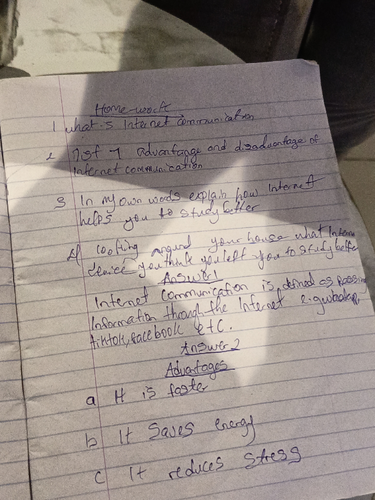 Home-work
1 what is Internet communication
2 list 7 advantange and disadvantage of
Internet communication
3 In my own words explain how Internet
helps you to study better
4 looking around your house what Interne
device you think you left you to study better
Answer 1
Internet communication is defined as passin
Information though the Internet e.g
tiktok, facebook etc.
Answer 2
Advantages
a It is faster
b It saves energy
c It reduces stress